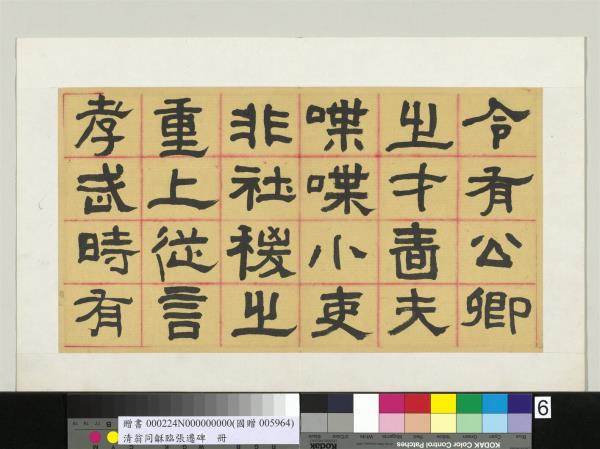 令有公卿
之才嗇夫
喋喋小吏
非社稷之
重上從言
孝武時有
贈書 000224N000000000(國贈 005964)
清翁同龢臨張遷碑 冊
6
KODAK Color Control Patches
Blue
Cyan
Green
Yellow
Red
Magenta
White